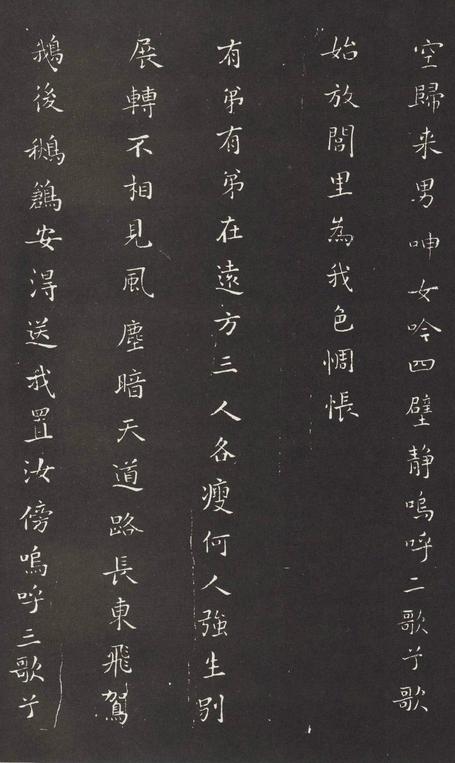 空歸来男呻女吟四壁静嗚呼二歌兮歌
始放閭里為我色惆悵
有弟有弟在遠方三人各瘦何人強生别
展轉不相見風塵暗天道路長東飛鴐
鵝後鶖鶬安得送我置汝傍嗚呼三歌兮